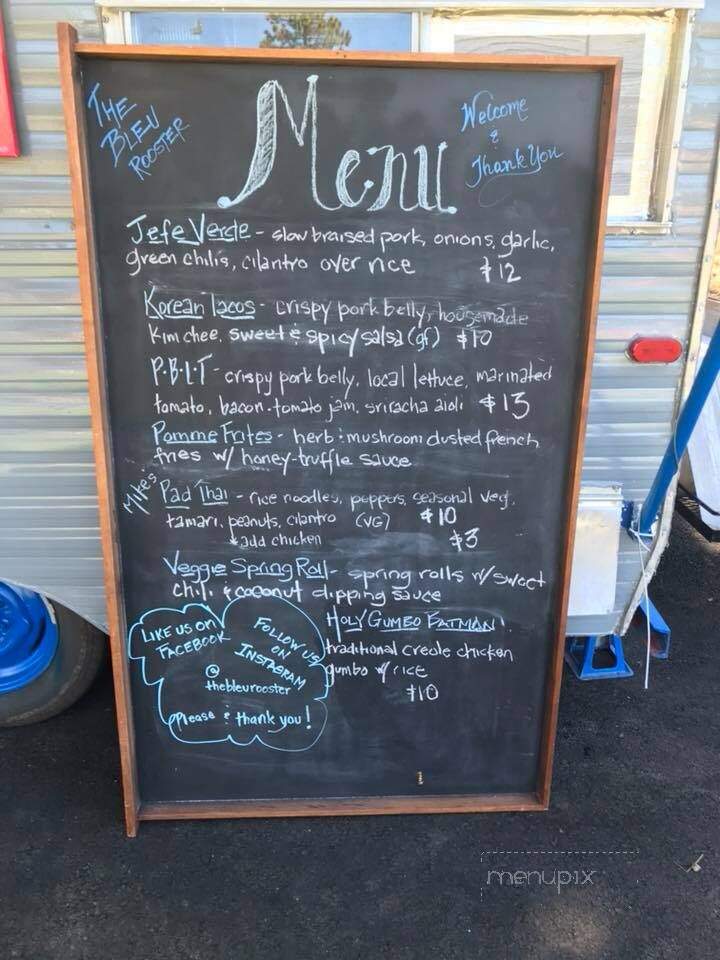 THE
BLEU
ROOSTER
Menu
Welcome
&
Thank You
Jefe Verde - slow braised pork, onions, garlic,
green chilis, cilantro over rice $12
Korean Tacos - crispy pork belly, housemade
Kim chee, sweet & spicy salsa (gf) $10
P.B.L.T - crispy pork belly, local lettuce, marinated
tomato, bacon-tomato jam, sriracha aioli $13
Pomme Frites - herb & mushroom dusted french
fries w/ honey-truffle sauce
Mike's Pad Thai - rice noodles, peppers, seasonal veg,
tamari, peanuts, cilantro (VG) $10
add chicken $3
Veggie Spring Roll - spring rolls w/ sweet
chili & coconut dipping sauce
HOLY GUMBO FATMAN!
traditional creole chicken
gumbo w/ rice
$10
LIKE US ON
FACEBOOK
FOLLOW US
ON
INSTAGRAM
@
thebleurooster
please & thank you!
menupix